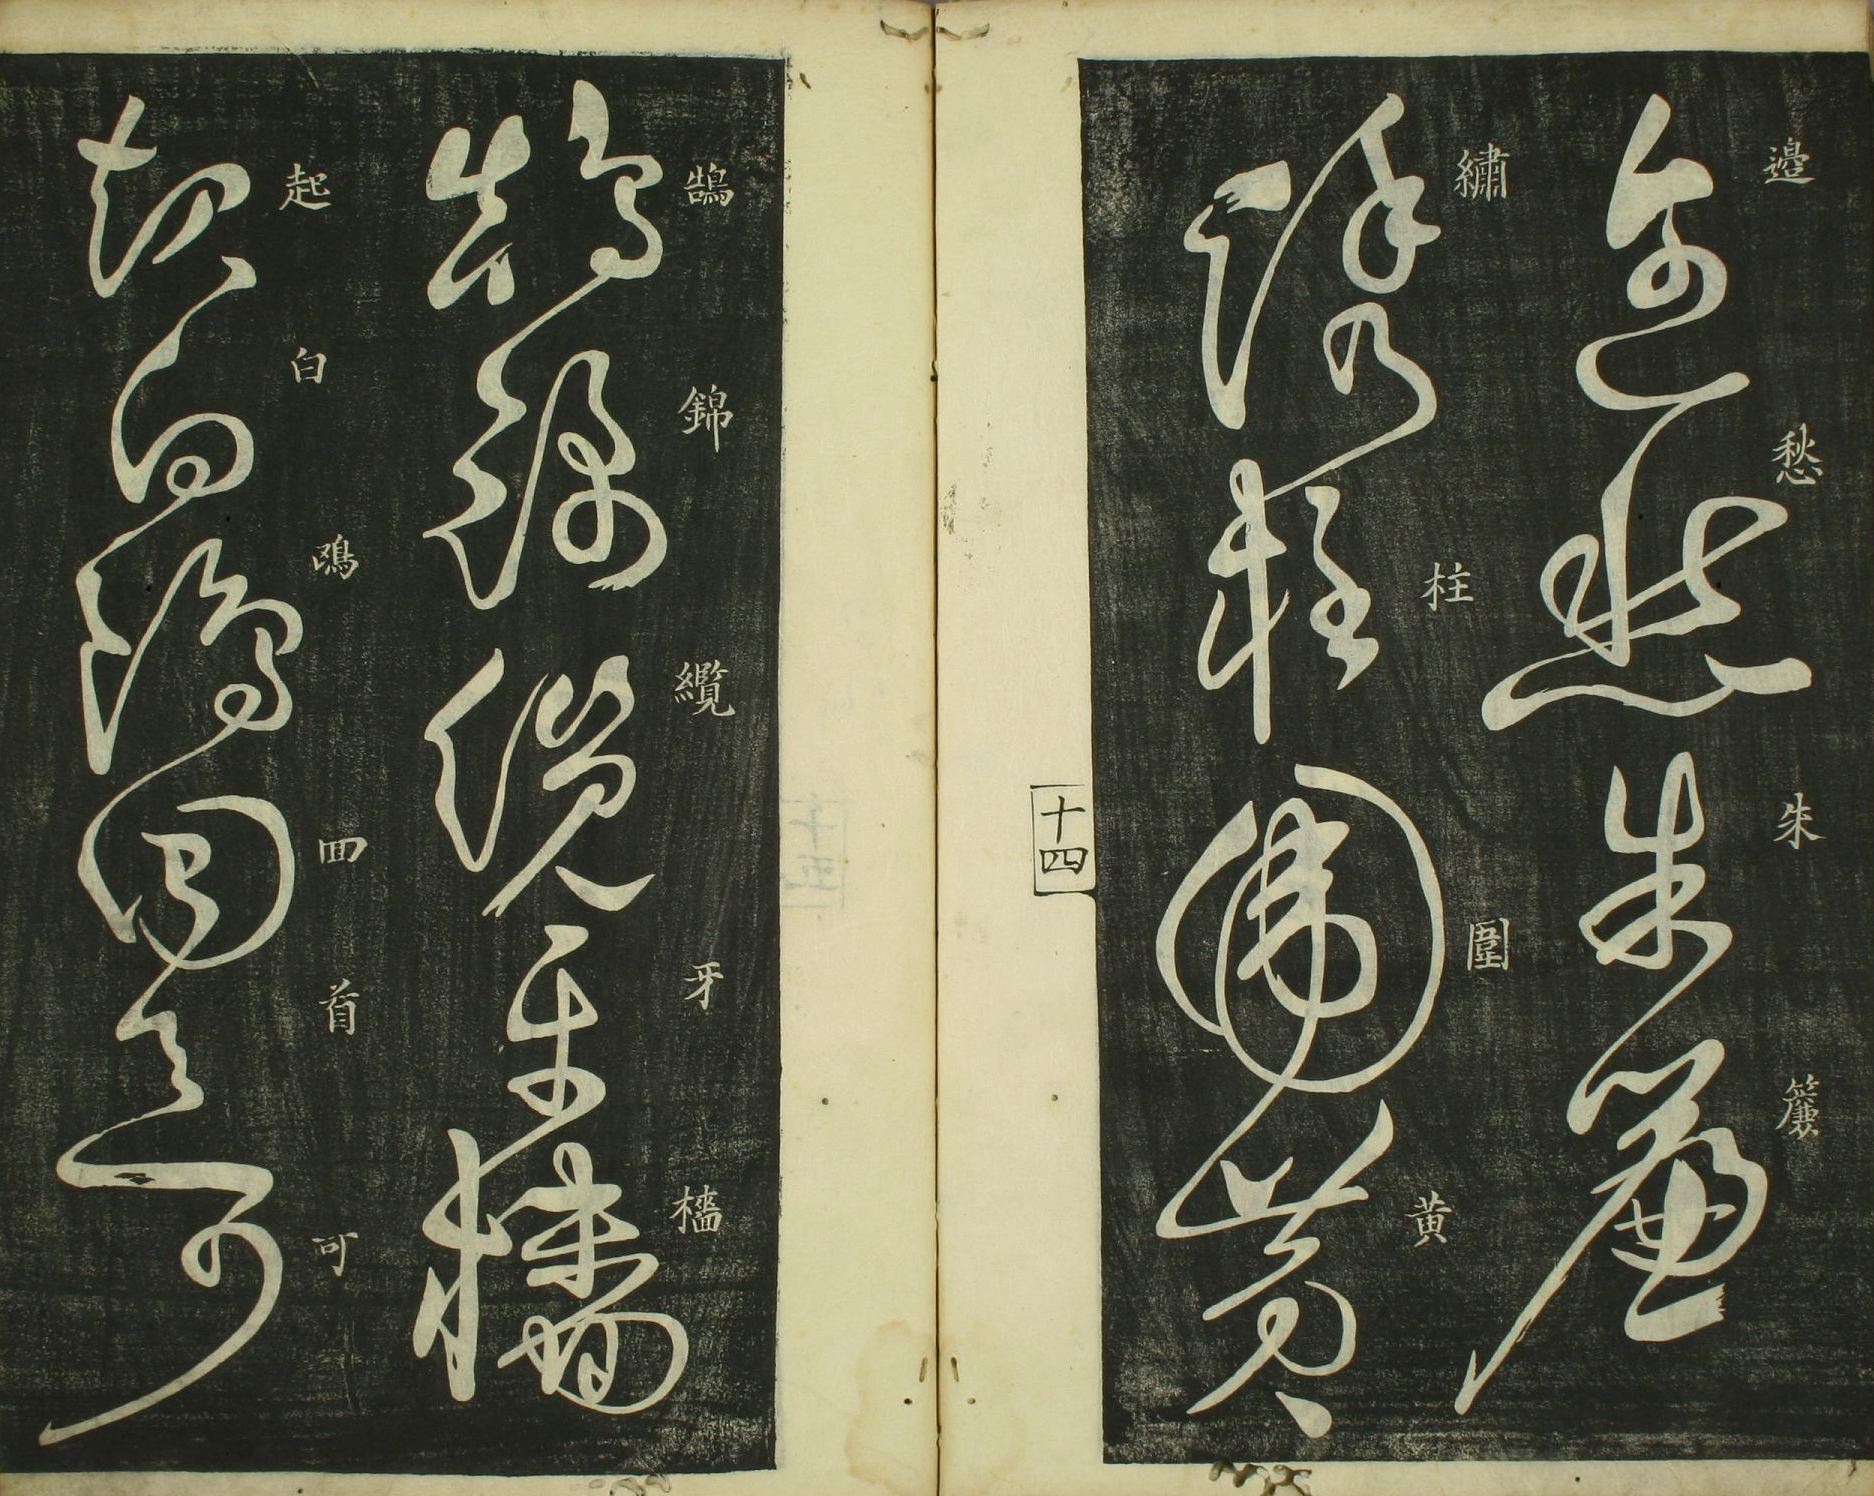 邉愁朱簾
繡柱圍黄
十四
鵠錦纜牙檣
起白鷗回首可